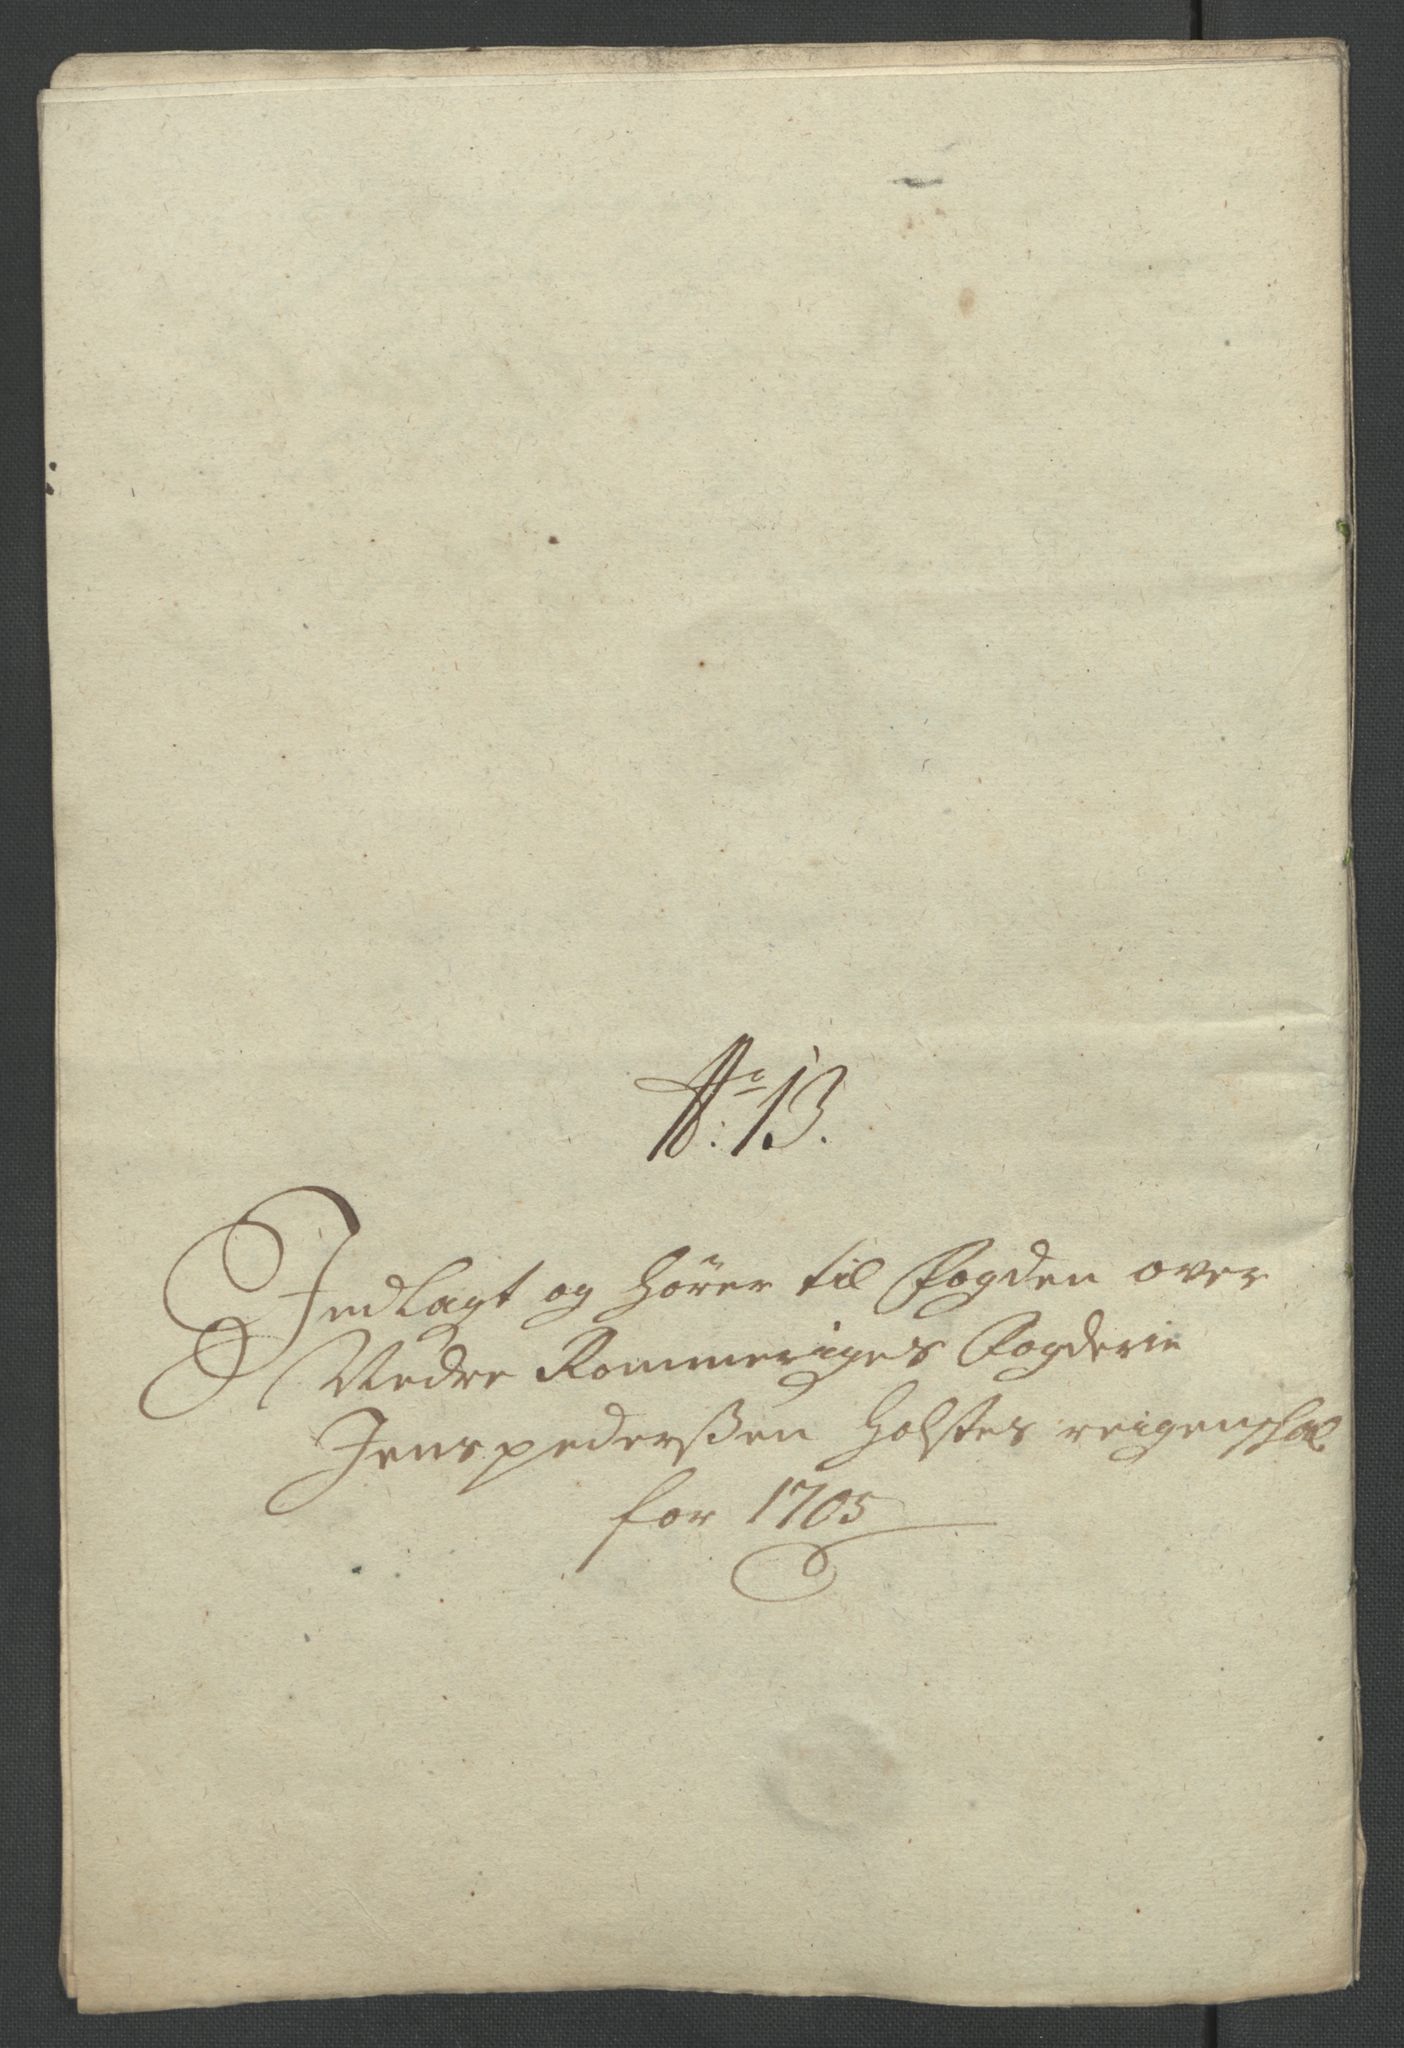 No: 13.
Indlagt og hører til Fogden over
Nedre Rommeriges Fogderie
Jens pederßen Holstes reigenskab
for 1705